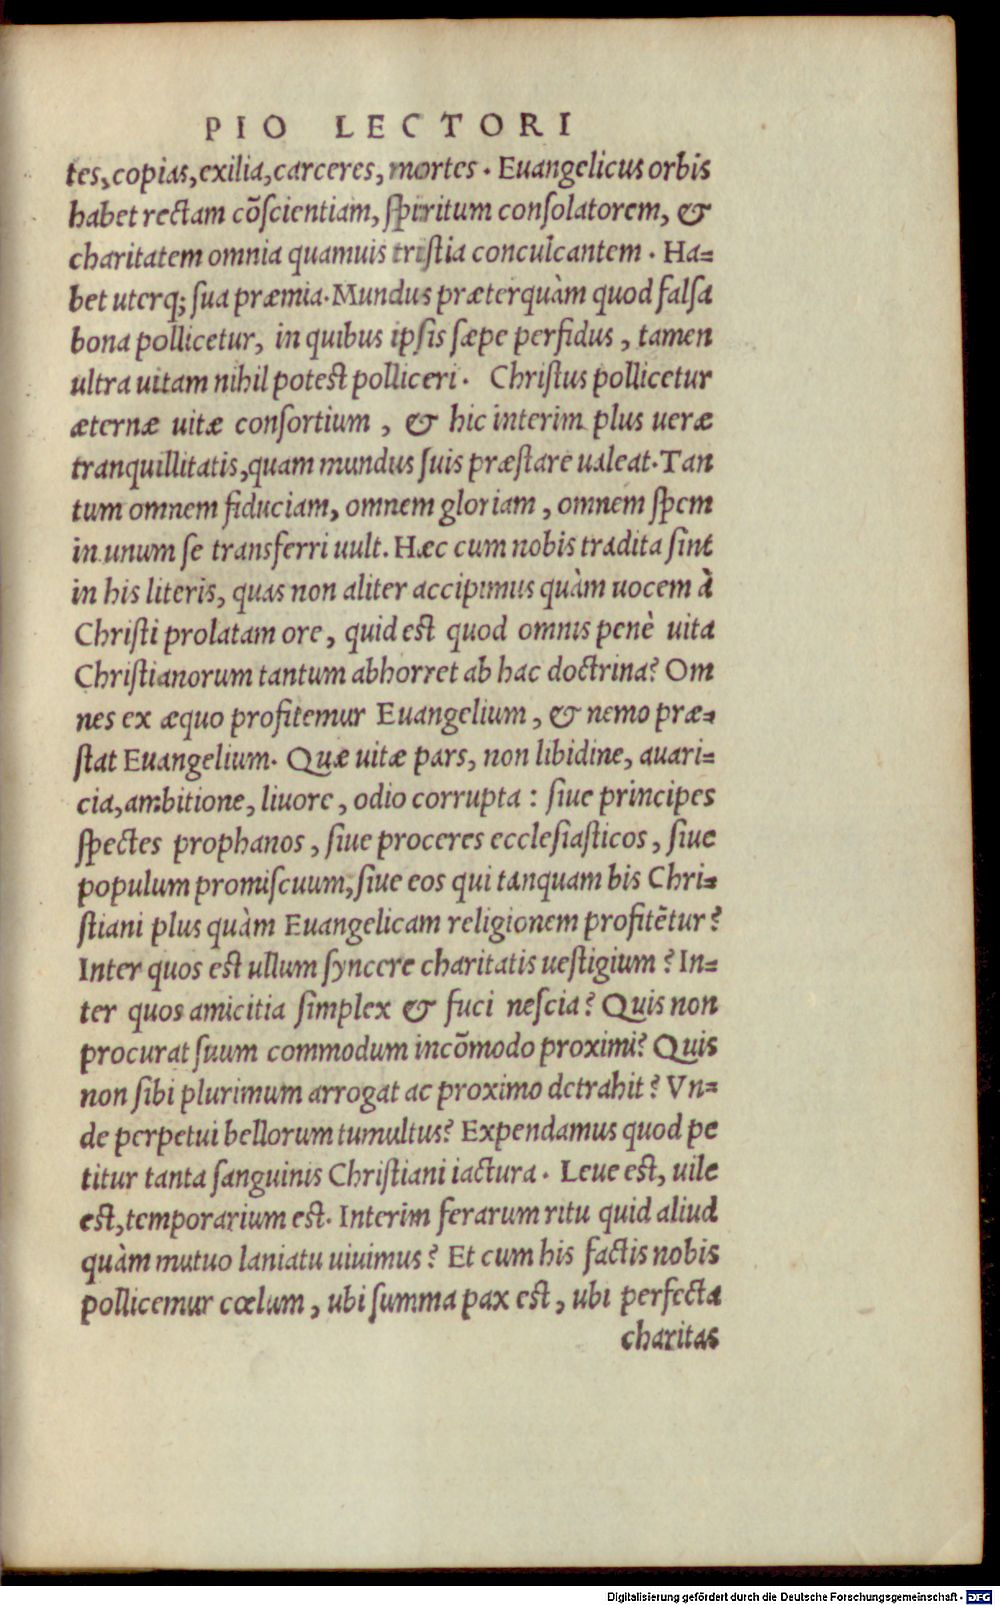 PIO LECTORI
tes, copias, exilia, carceres, mortes. Euangelicus orbis
habet rectam cõſcientiam, ſpiritum conſolatorem, &
charitatem omnia quamuis triſtia conculcantem. Ha=
bet uterq; ſua præmia. Mundus præterquàm quod falſa
bona pollicetur, in quibus ipſis ſæpe perfidus, tamen
ultra uitam nihil poteſt polliceri. Chriſtus pollicetur
æternæ uitæ conſortium, & hic interim plus ueræ
tranquillitatis, quam mundus ſuis præſtare ualeat. Tan
tum omnem fiduciam, omnem gloriam, omnem ſpem
in unum ſe transferri uult. Hæc cum nobis tradita ſint
in his literis, quas non aliter accipimus quàm uocem à
Chriſti prolatam ore, quid eſt quod omnis penè uita
Chriſtianorum tantum abhorret ab hac doctrina? Om
nes ex æquo profitemur Euangelium, & nemo præ=
ſtat Euangelium. Quæ uitæ pars, non libidine, auari=
cia, ambitione, liuore, odio corrupta: ſiue principes
ſpectes prophanos, ſiue proceres eccleſiaſticos, ſiue
populum promiſcuum, ſiue eos qui tanquam bis Chri=
ſtiani plus quàm Euangelicam religionem profitẽtur?
Inter quos eſt ullum ſyncere charitatis ueſtigium? In=
ter quos amicitia ſimplex & fuci neſcia? Quis non
procurat ſuum commodum incõmodo proximi? Quis
non ſibi plurimum arrogat ac proximo detrahit? Vn=
de perpetui bellorum tumultus? Expendamus quod pe
titur tanta ſanguinis Chriſtiani iactura. Leue eſt, uile
eſt, temporarium eſt. Interim ferarum ritu quid aliud
quàm mutuo laniatu uiuimus? Et cum his factis nobis
pollicemur cœlum, ubi ſumma pax eſt, ubi perfecta
charitas
Digitalisierung gefördert durch die Deutsche Forschungsgemeinschaft - DFG